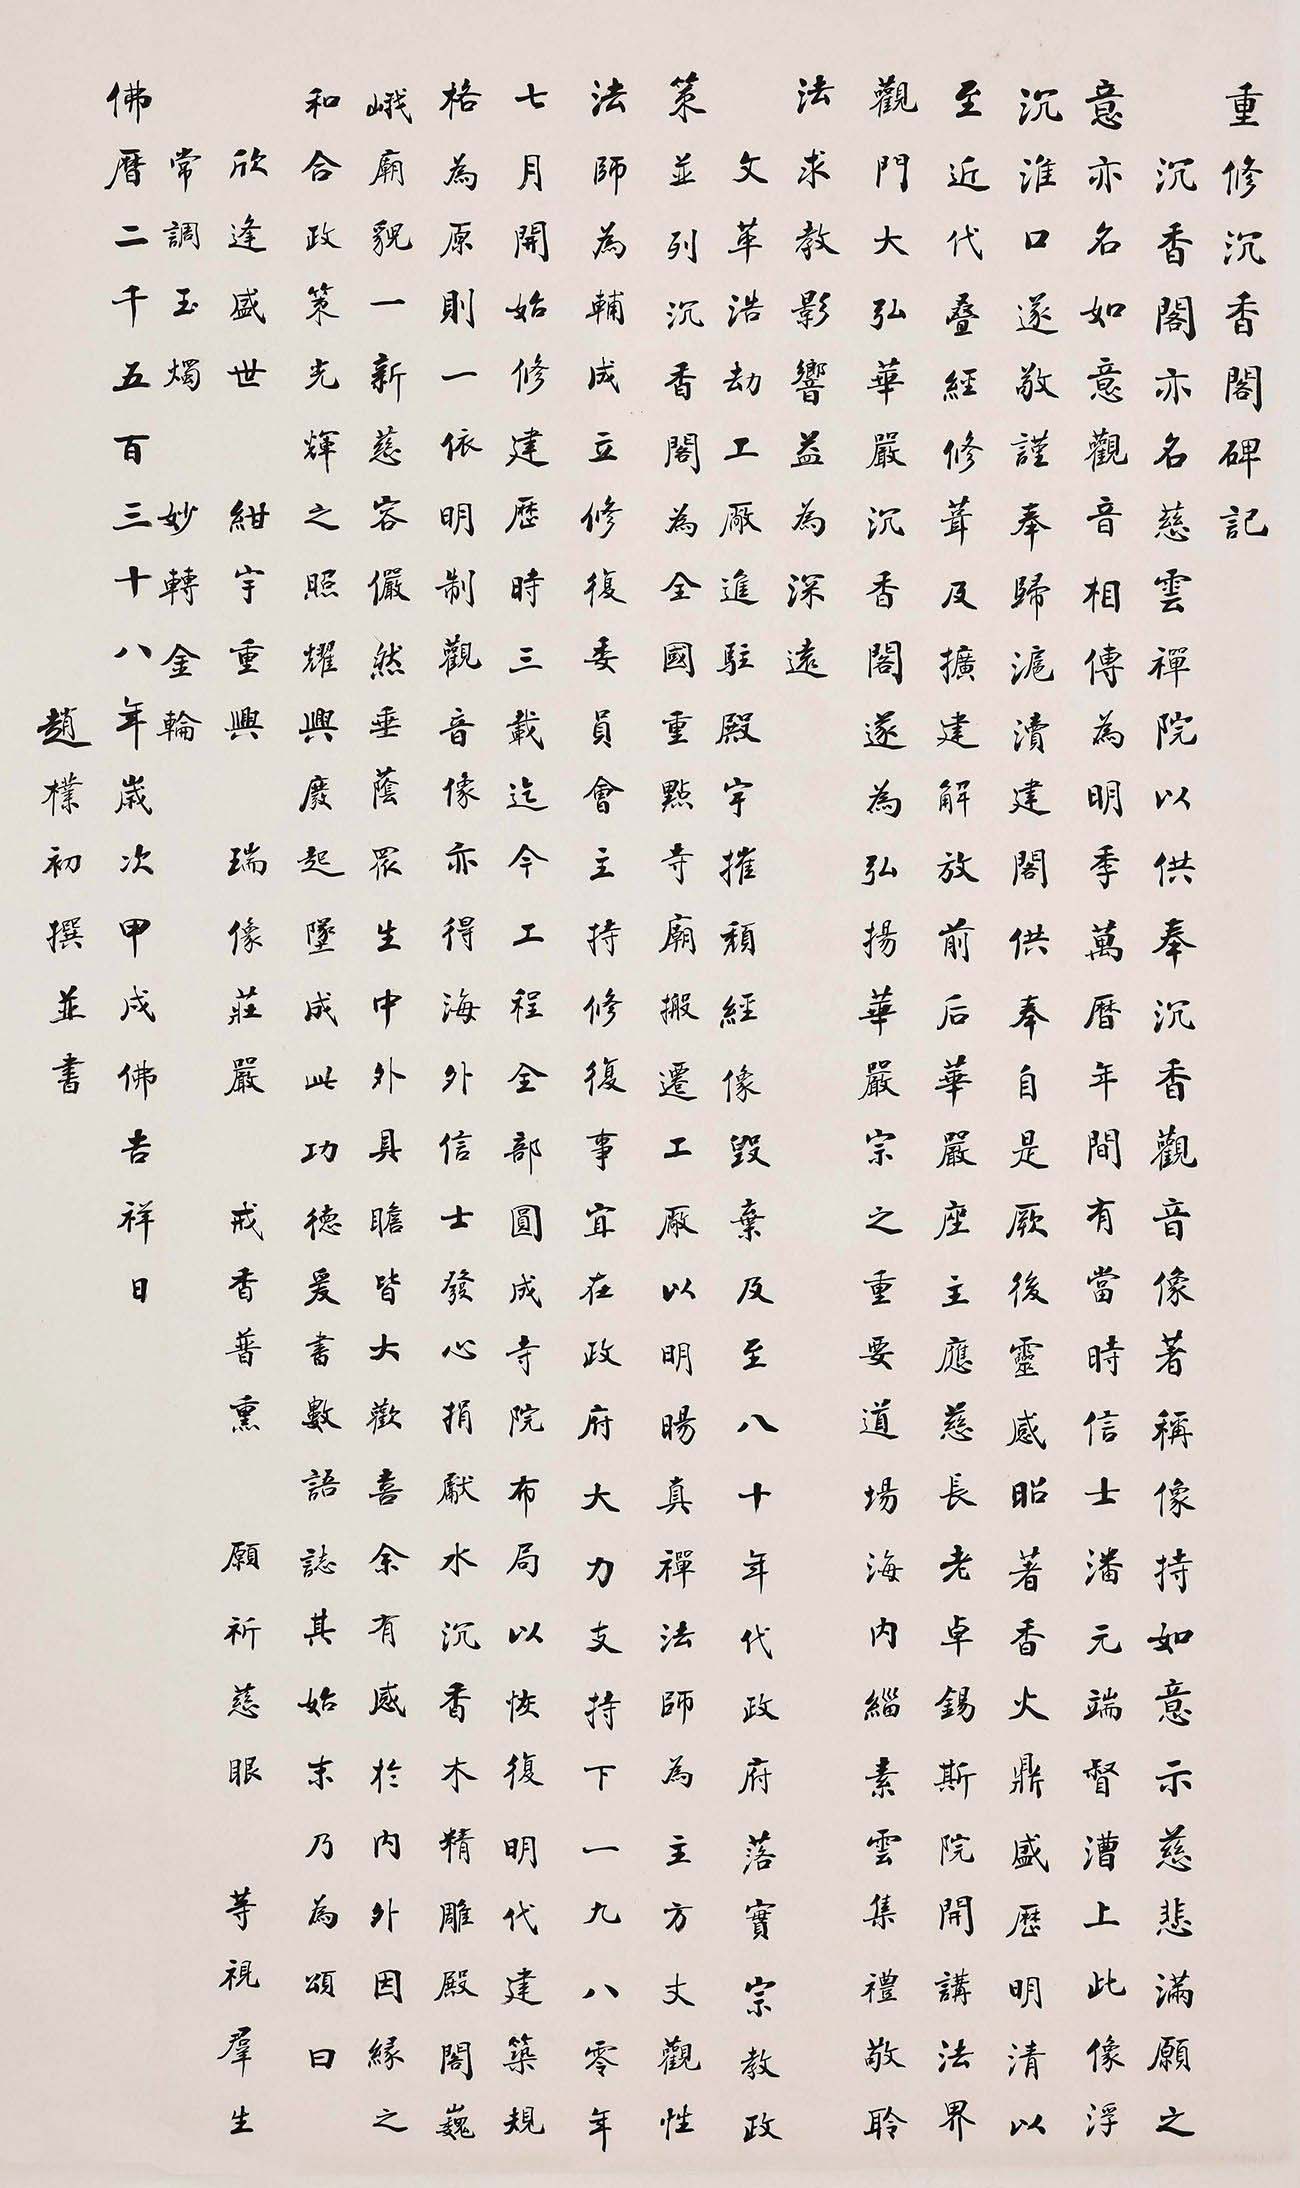 重修沉香閣碑記
沉香閣亦名慈雲禪院以供奉沉香觀音像著稱像持如意示慈悲滿願之
意亦名如意觀音相傳為明季萬曆年間有當時信士潘元端督漕上此像浮
沉淮口遂敬謹奉歸滬瀆建閣供奉自是厥後靈感昭著香火鼎盛歷明清以
至近代叠經修葺及擴建解放前后華嚴座主應慈長老卓錫斯院開講法界
觀門大弘華嚴沉香閣遂為弘揚華嚴宗之重要道場海內緇素雲集禮敬聆
法求教影響益為深遠
文革浩劫工廠進駐殿宇摧頹經像毀棄及至八十年代政府落實宗教政
策並列沉香閣為全國重點寺廟搬遷工廠以明暘真禪法師為主方丈觀性
法師為輔成立修復委員會主持修復事宜在政府大力支持下一九八零年
七月開始修建歷時三載迄今工程全部圓成寺院布局以恢復明代建築規
格為原則一依明制觀音像亦得海外信士發心捐獻水沉香木精雕殿閣巍
峨廟貌一新慈容儼然垂蔭眾生中外具瞻皆大歡喜余有感於內外因緣之
和合政策光輝之照耀興廢起墜成此功德爰書數語誌其始末乃為頌曰
欣逢盛世 紺宇重興 瑞像莊嚴 戒香普熏 願祈慈眼 等視羣生
常調玉燭 妙轉金輪
佛曆二千五百三十八年歲次甲戌佛吉祥日
趙樸初撰並書